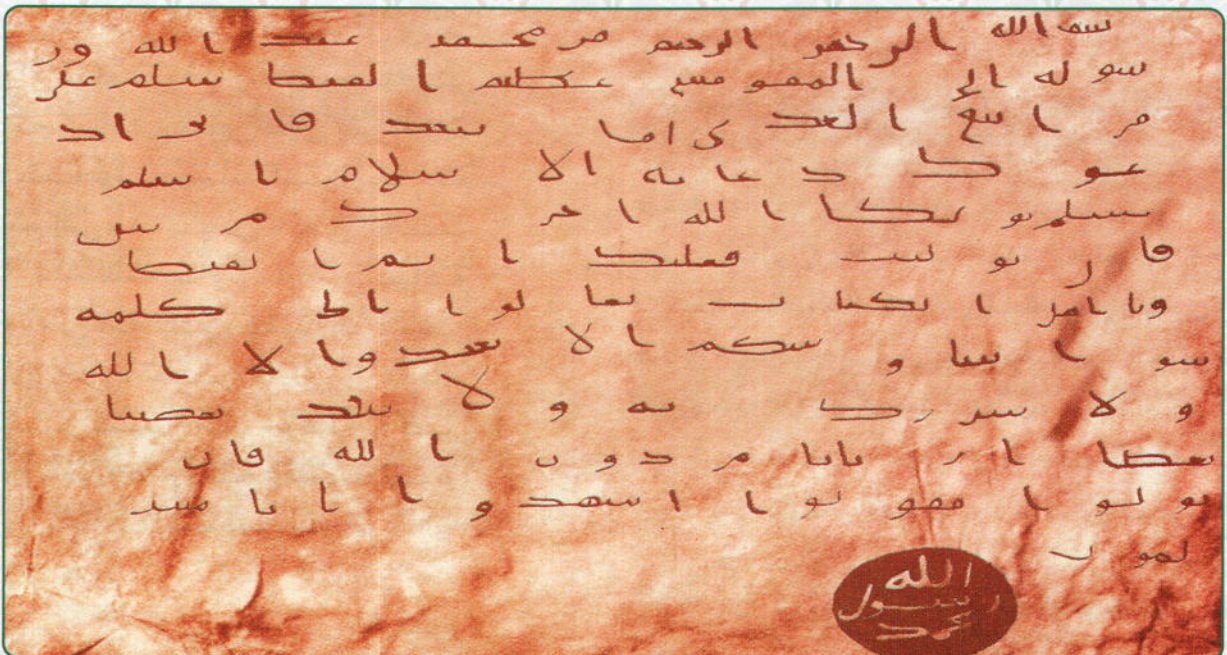 بسم الله الرحمن الرحيم من محمد عبد الله ور
سوله إلى المقوقس عظيم القبط سلام على
من اتبع الهدى اما بعد فاني اد
عوك بدعاية الاسلام اسلم
تسلم يوتك الله اجرك مرتين
فان توليت فعليك اثم القبط
ويا اهل الكتاب تعالوا الى كلمة
سواء بيننا وبينكم الا نعبد الا الله
ولا نشرك به ولا يتخذ بعضنا
بعضا اربابا من دون الله فان
تولوا فقولوا اشهدوا بانا مسـ
لمون
الله
رسول
محمد